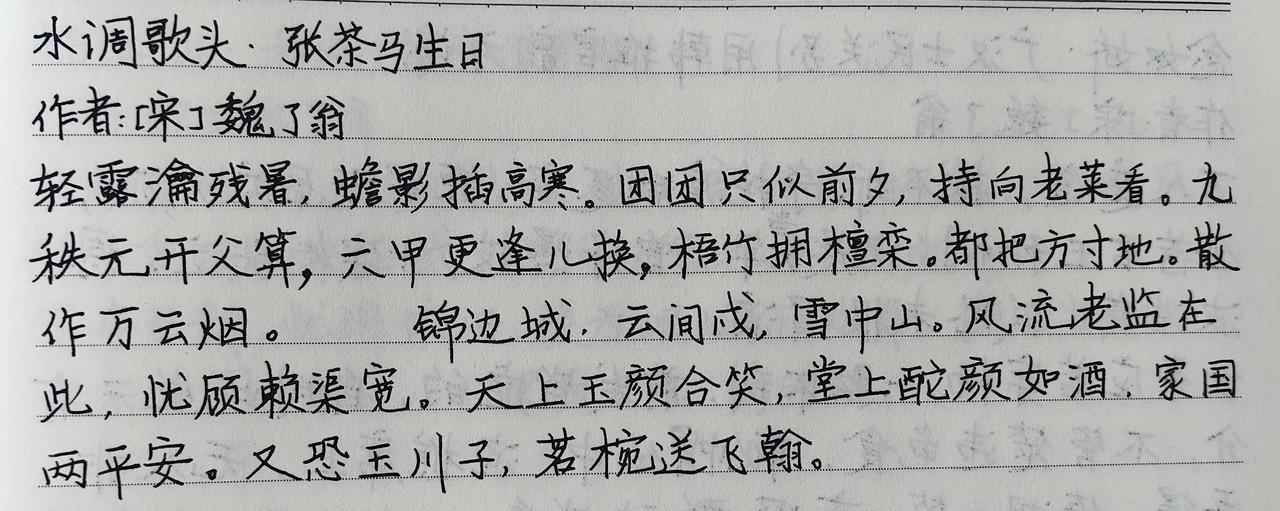 水调歌头·张茶马生日
作者:[宋]魏了翁
轻露瀹残暑,蟾影插高寒。团团只似前夕,持向老莱看。九
秩元开父算,六甲更逢儿换,梧竹拥檀栾。都把方寸地。散
作万云烟。 锦边城.云间戍,雪中山。风流老监在
此,忧顾赖渠宽。天上玉颜合笑,堂上酡颜如酒.家国
两平安。又恐玉川子,茗椀送飞翰。